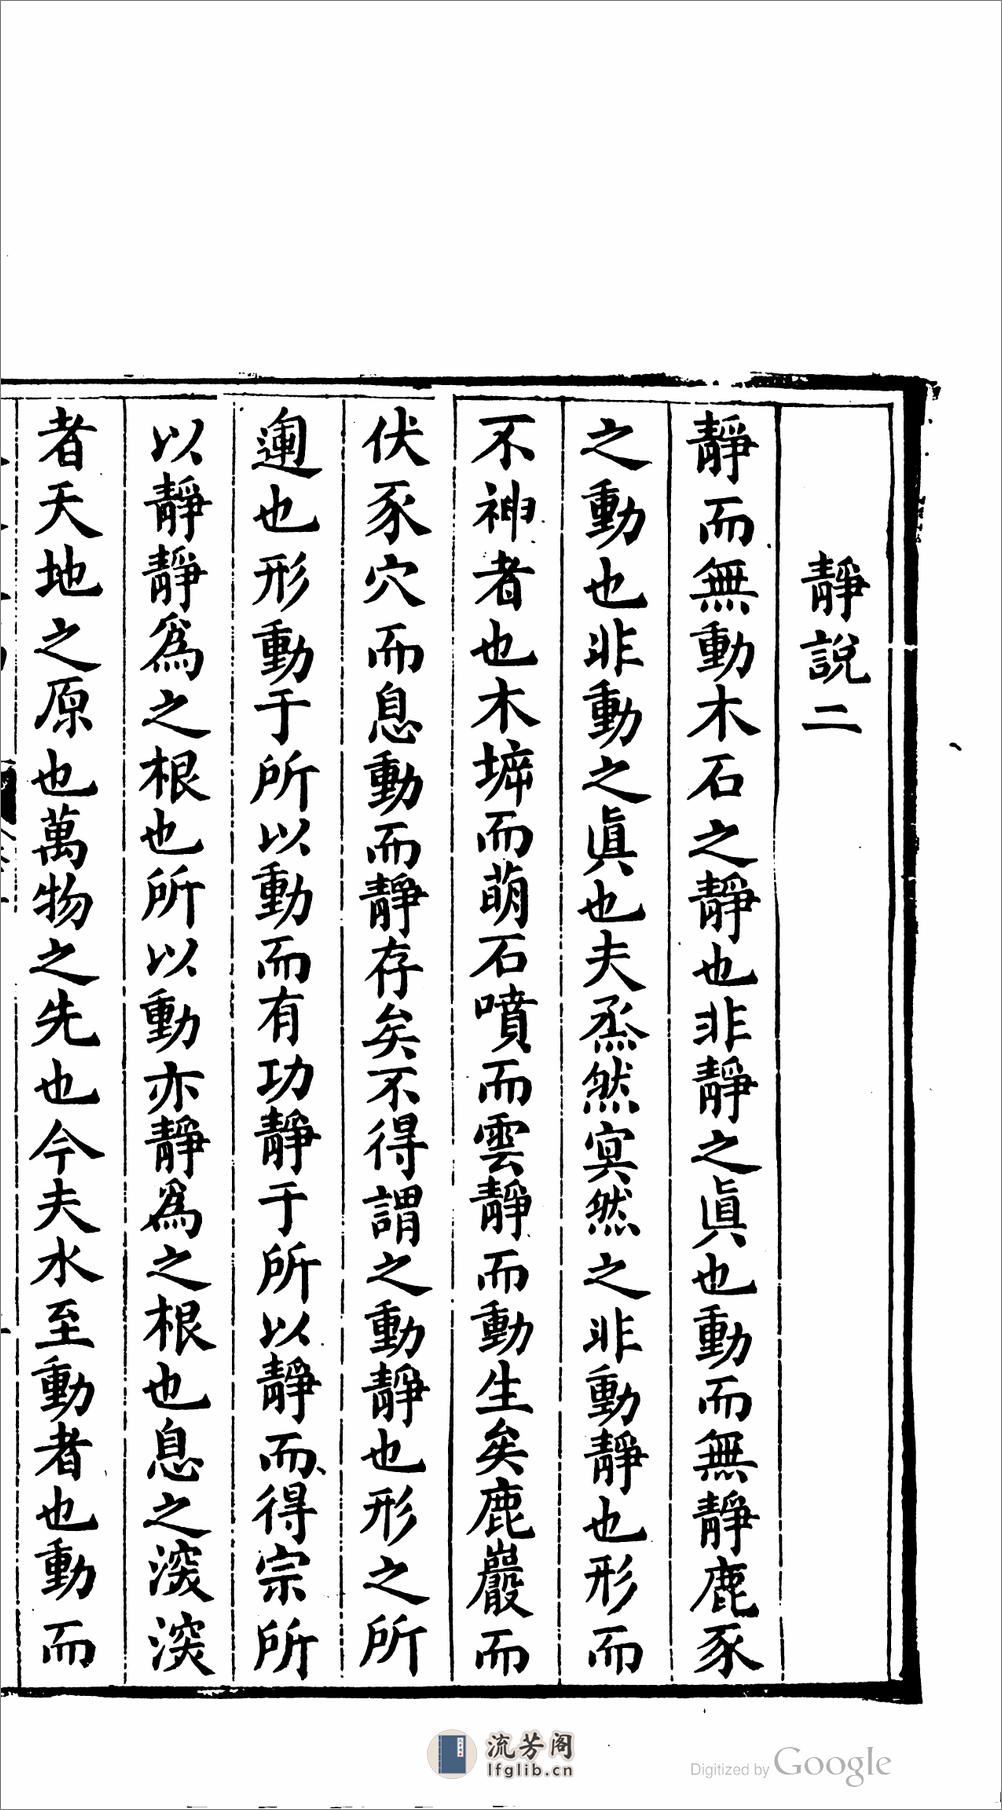 靜說二
靜而無動木石之靜也非靜之眞也動而無靜鹿豕
之動也非動之眞也夫烝然冥然之非動靜也形而
不神者也木墆而萌石噴而雲靜而動生矣鹿巖而
伏豕穴而息動而靜存矣不得謂之動靜也形之所
運也形動于所以動而有功靜于所以靜而得宗所
以靜靜爲之根也所以動亦靜爲之根也息之深深
者天地之原也萬物之先也今夫水至動者也動而
流芳阁
lfglib.cn
Digitized by Google